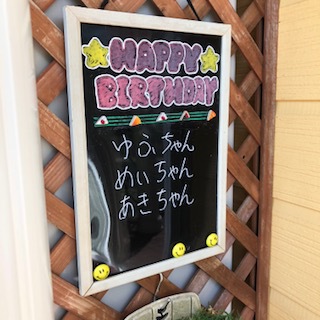 HAPPY
BIRTHDAY
ゆふちゃん
めいちゃん
あきちゃん